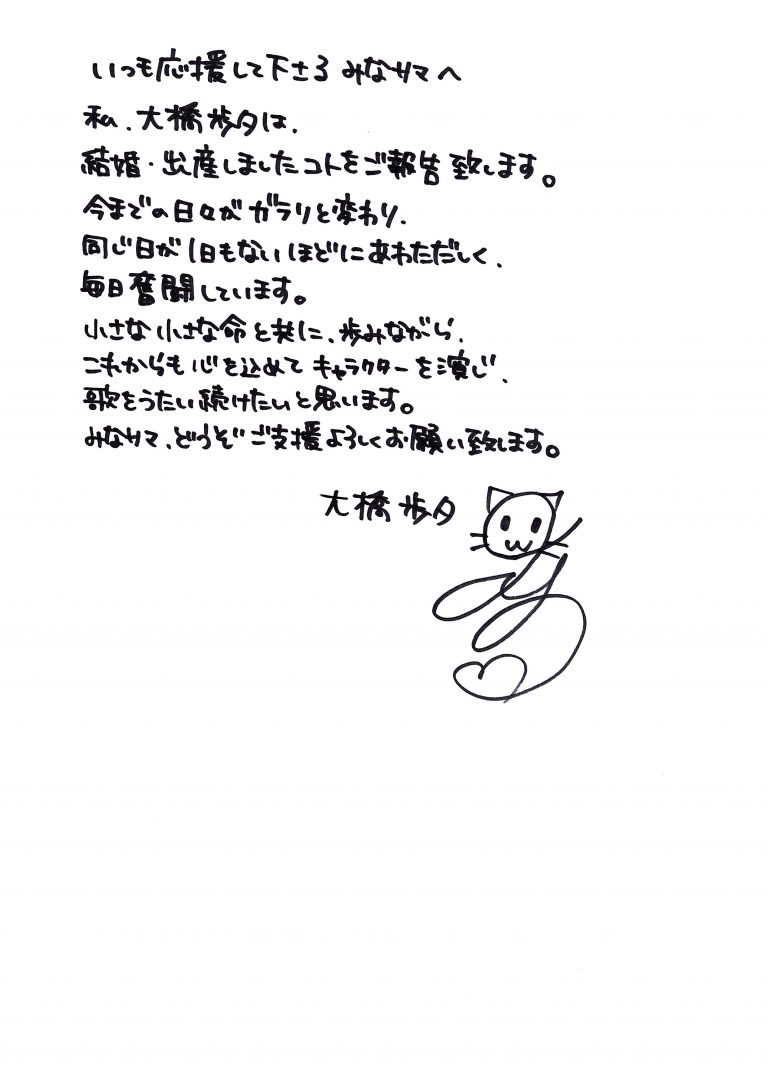 いつも応援して下さる みなサマへ
私、大橋歩夕は、
結婚・出産しましたコトをご報告致します。
今までの日々が ガラリと変わり、
同じ日が1日もないほどにあわただしく、
毎日奮闘しています。
小さな小さな命と共に、歩みながら、
これからも心を込めて キャラクターを演じ、
歌をうたい続けたいと思います。
みなサマ、どうぞご支援よろしくお願い致します。
大橋歩夕